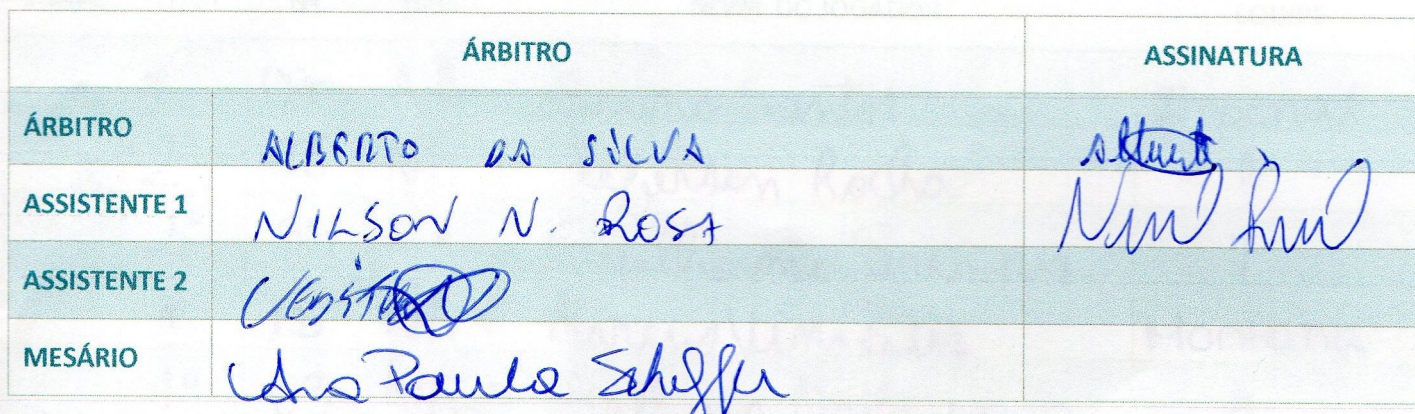 ÁRBITRO ASSINATURA
ÁRBITRO ALBERTO DA SILVA
ASSISTENTE 1 NILSON N. ROSA
ASSISTENTE 2
MESÁRIO Ana Paula Scheffer